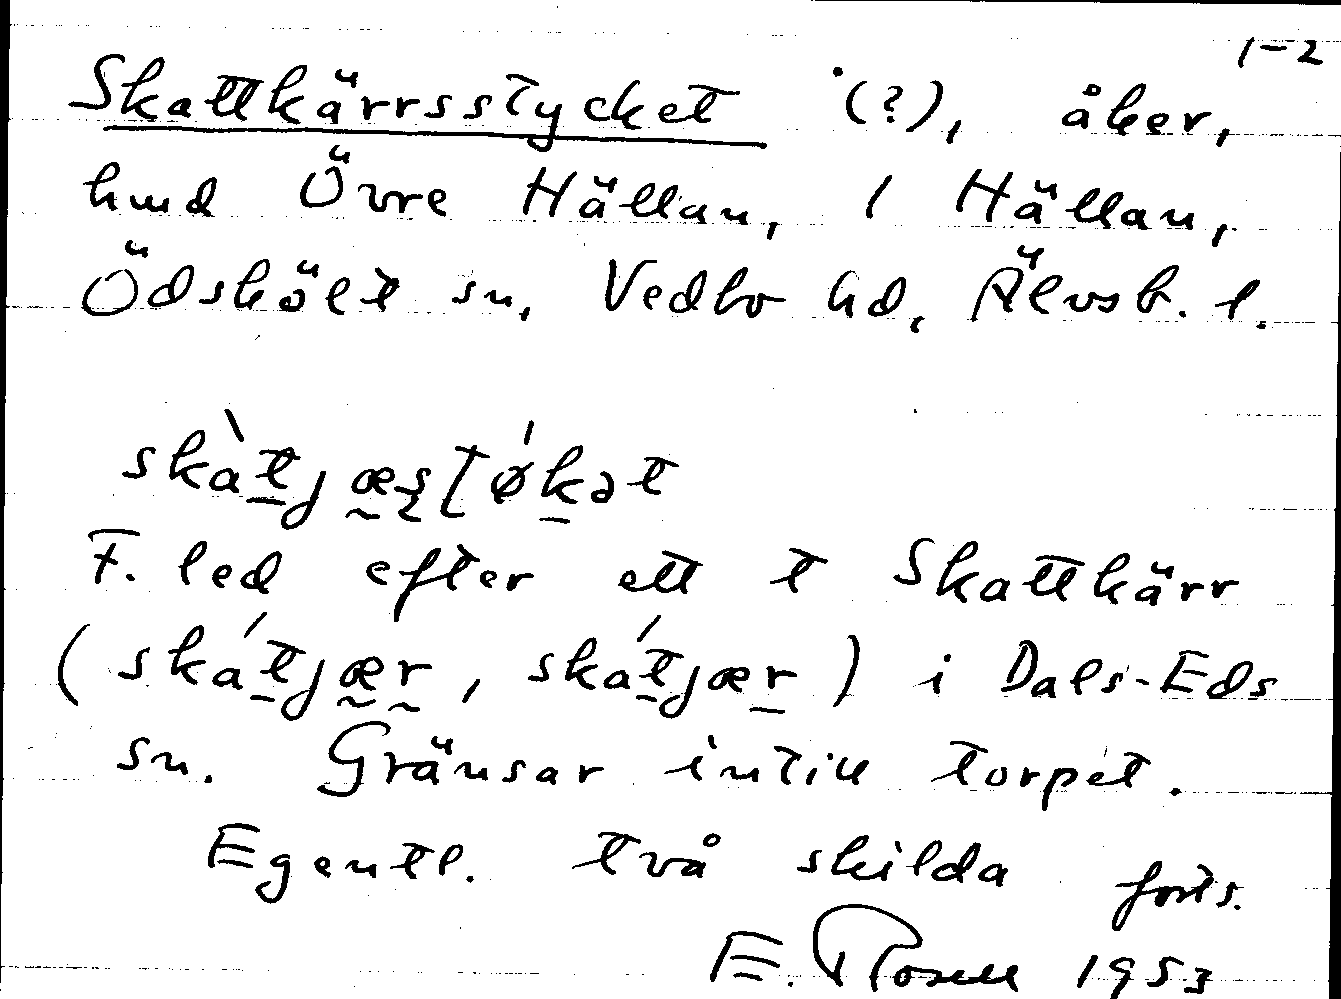 1-2
Skattkärrsstycket (?), åker,
hmd Övre Hällan, 1 Hällan,
Ödskölt sn, Vedbo hd, Älvsb. l.
skàt̠jæ̰ʂʈøḱ̠ət
F. led efter ett t Skattkärr
(skát̠jæ̰r̰, skát̠jær̠) i Dals-Eds
sn. Gränsar intill torpet.
Egentl. två skilda forts.
E. Rosell 1953